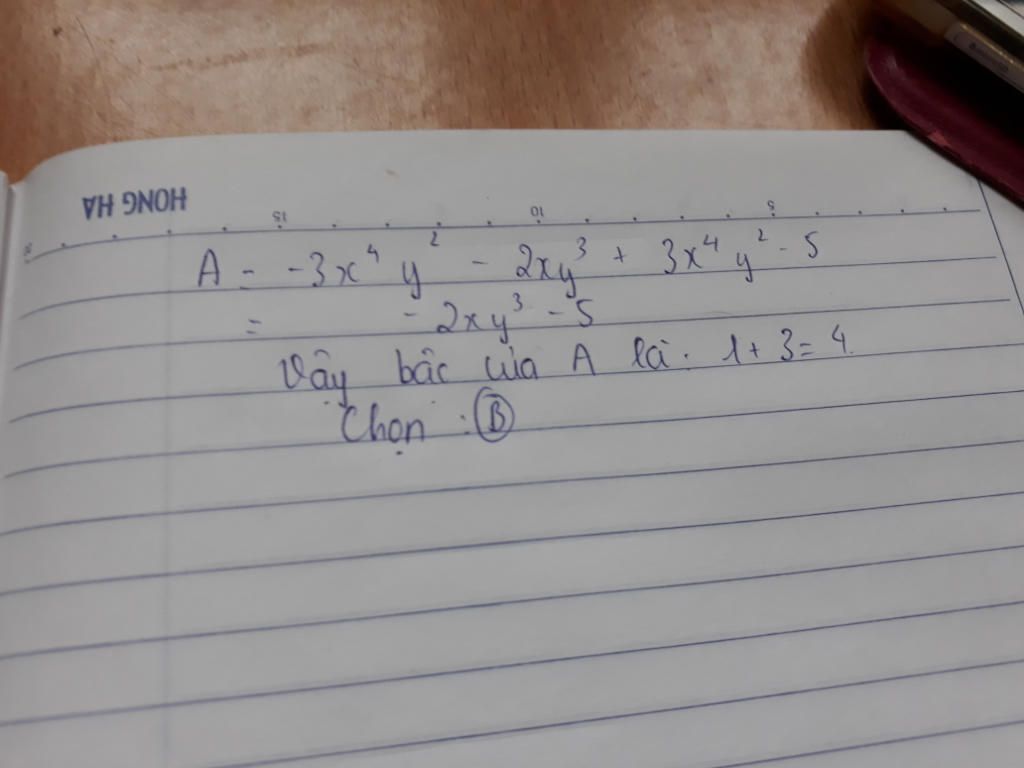 HONG HA
15 10 5
A = -3x⁴y² - 2xy³ + 3x⁴y² - 5
= - 2xy³ - 5
Vậy bậc của A là: 1 + 3 = 4.
Chọn : B